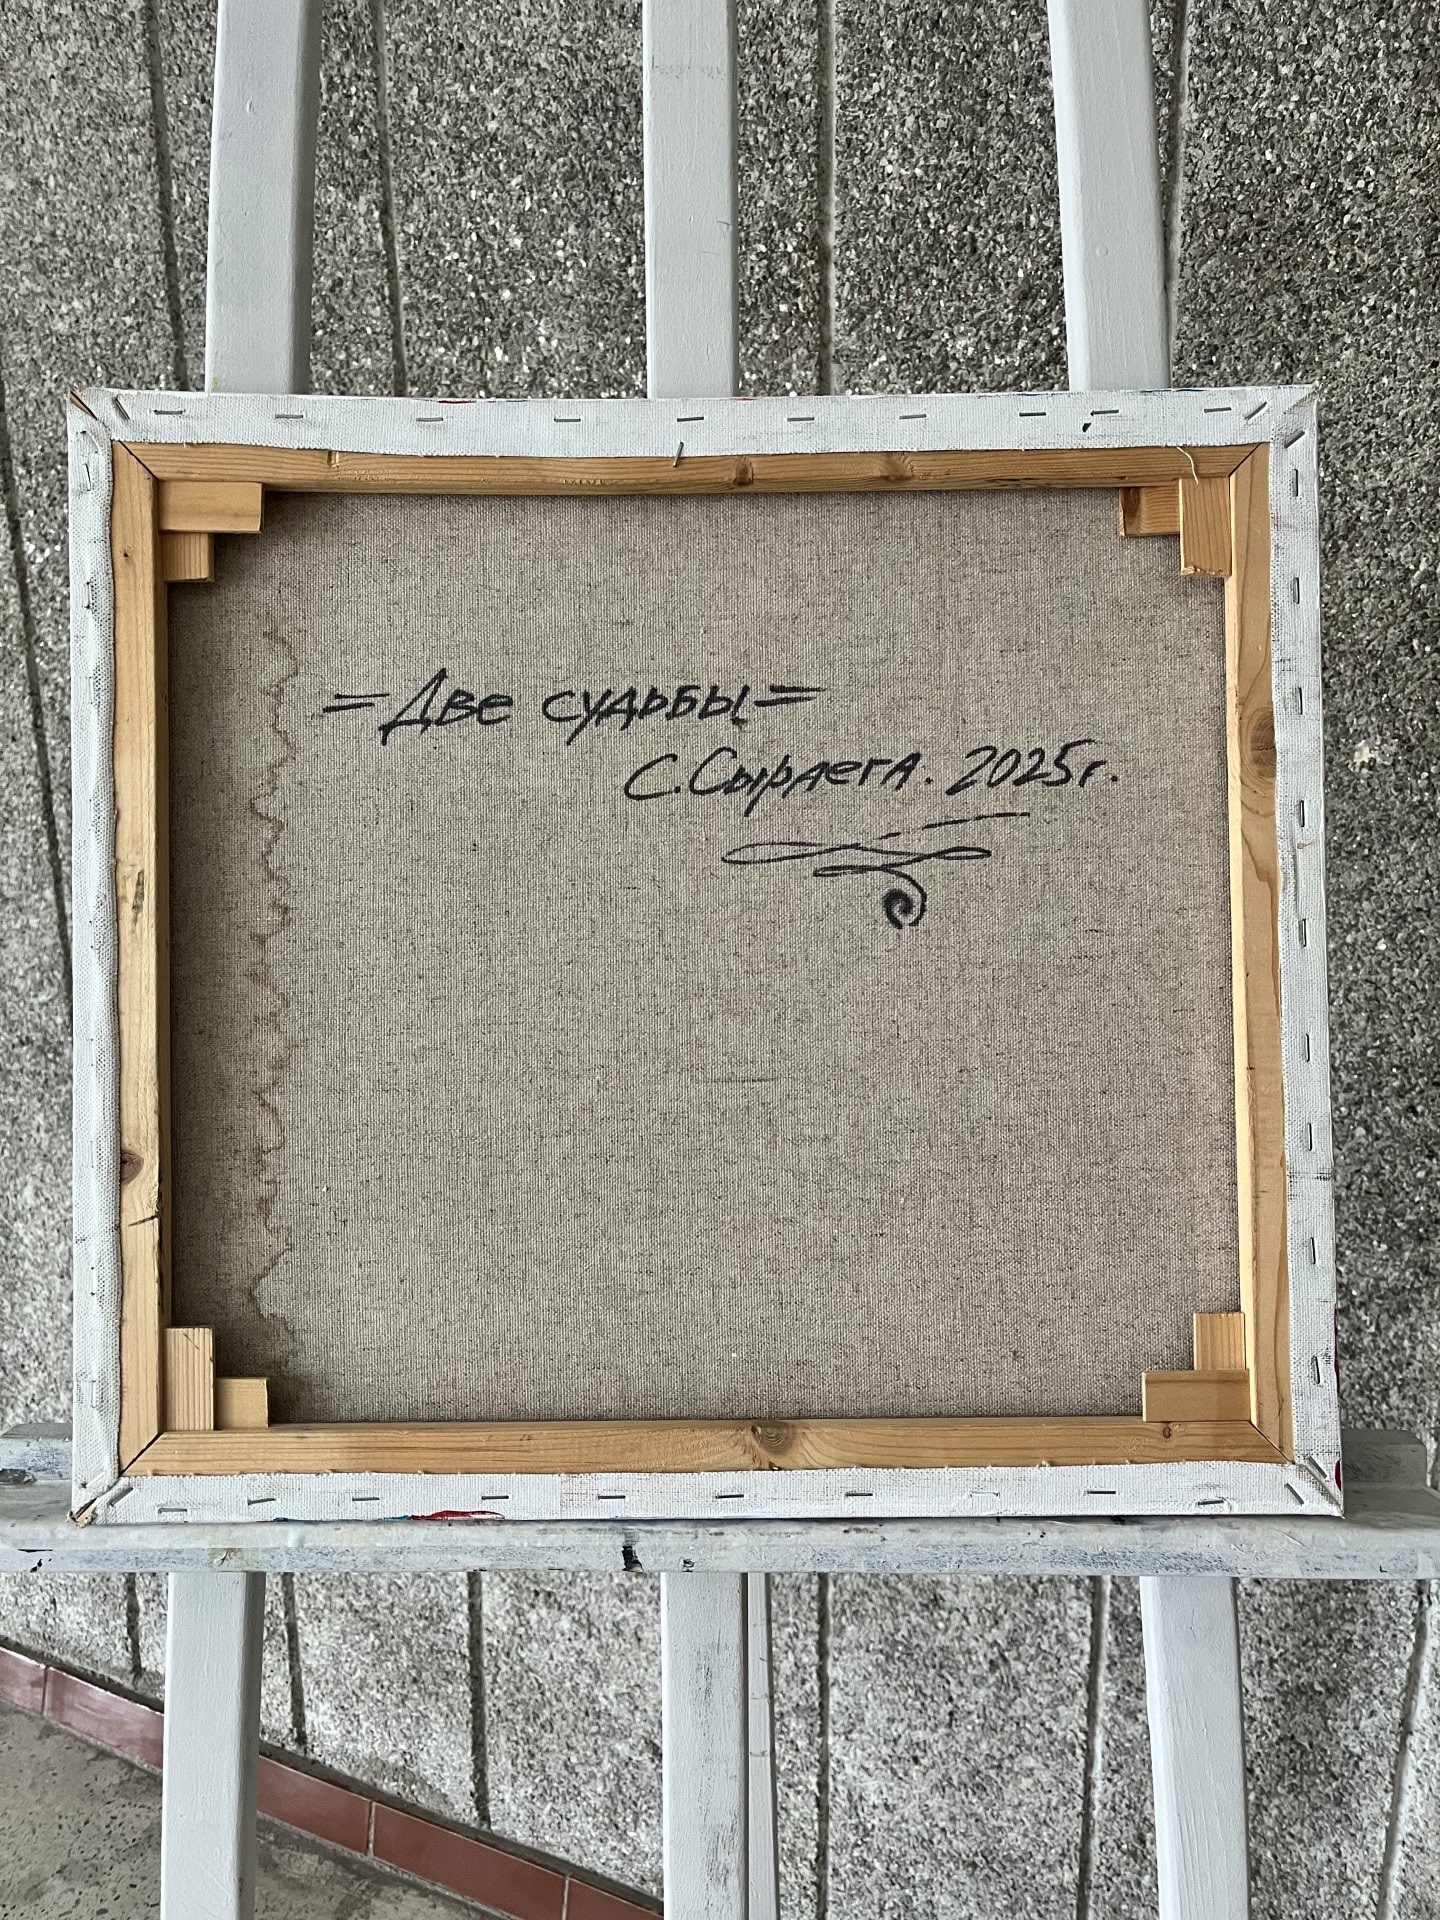 =Две судьбы=
С.Сырлега. 2025г.